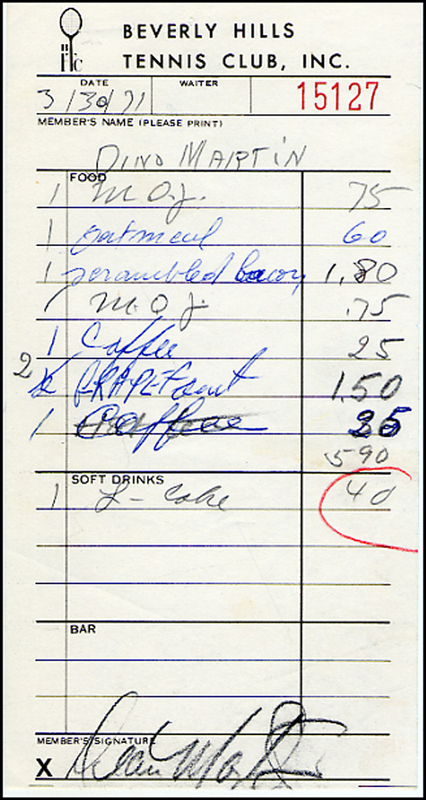 BEVERLY HILLS
TENNIS CLUB, INC.
DATE WAITER
3/30/71 15127
MEMBER'S NAME (PLEASE PRINT)
DINO MARTIN
FOOD
1 M.O.J. 75
1 oatmeal 60
1 scrambled bacon 1.80
1 M.O.J. .75
1 Coffee 25
2 GRAPEFruit 1.50
1 Coffee 25
5 90
SOFT DRINKS
1 L-Coke 40
BAR
MEMBER'S SIGNATURE
X Dean Martin